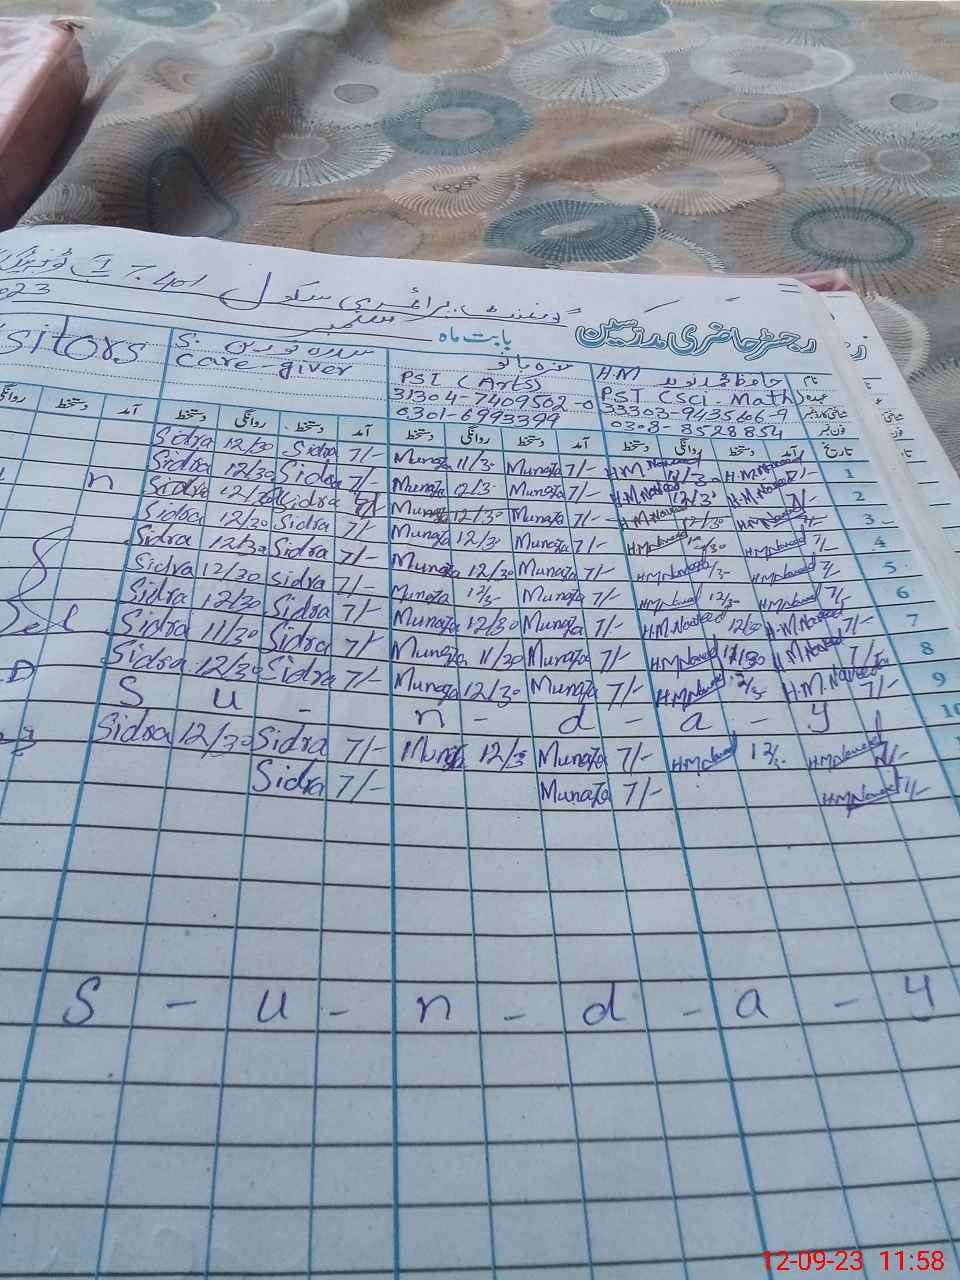 گورنمنٹ پرائمری سکول
023
ستمبر
بابت ماہ
رجسٹر حاضری مدرسین
sitors
S.
Care-giver
PST (Arts)
31304-7409502-0
0301-6993399
H.M
PST (Sci-Math)
33303-9435606-9
0308-8528854
نام
عہدہ
روانگی دستخط آمد دستخط روانگی دستخط آمد دستخط روانگی دستخط آمد دستخط روانگی دستخط آمد تاریخ
Sidra 12/30 Sidra 7/- Munaza 11/30 Munaza 7/- H.M.Naveed H.M.Naveed 7/- 1
Sidra 12/30 Sidra 7/- Munaza 12/3 Munaza 7/- H.M.Naveed 12/30 H.M.Naveed 7/- 2
n
Sidra 12/30 Sidra Munaza 12/30 Munaza 7/- H.M.Naveed 12/30 H.M.Naveed 3
Sidra 12/30 Sidra 7/- Munaza 12/30 Munaza 7/- H.M.Naveed H.M.Naveed 7/- 4
Sidra 12/30 Sidra 7/- Munaza 12/30 Munaza 7/- H.M.Naveed H.M.Naveed 7/- 5
Sidra 12/30 Sidra 7/- Munaza Munaza 7/- H.M.Naveed 12/30 H.M.Naveed 7/- 6
Sidra 12/30 Sidra 7/- Munaza 12/30 Munaza 7/- H.M.Naveed 12/30 H.M.Naveed 7/- 7
Sidra 11/30 Sidra 7/- Munaza 11/30 Munaza 7/- H.M.Naveed 11/30 H.M.Naveed 7/- 8
Sidra 12/30 Sidra 7/- Munaza 12/30 Munaza 7/- H.M.Naveed H.M.Naveed 7/- 9
S u - n - d - a - y 10
Sidra 12/30 Sidra 7/- Munaza 12/3 Munaza 7/- H.M.Naveed 12/3 H.M.Naveed 7/-
Sidra 7/- Munaza 7/- H.M.Naveed 7/-
S - u - n - d - a - y
12-09-23 11:58